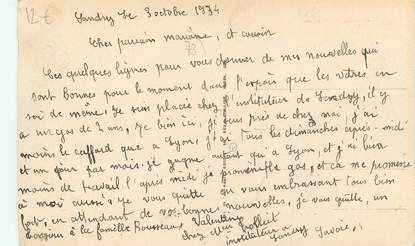 12 €
Landry le 3 octobre 1934
Cher parrain marraine, et cousin
73
Ces quelques lignes pour vous donner de mes nouvelles qui
sont bonnes pour le moment dans l'espoir que les vôtres en
soi de même, je suis placée chez instituteur de Landry, il y
a un gas de 2 ans, je bien ici, je suis près de chez moi, j'ai
moins le caffard que a Lyon, j'ai tous les dimanches après-midi
et un jour par mois, je gagne autant qu'a Lyon, et j'ai bien
moins de travail l'après midi je promène le gas, et ca me promene
a moi aussi, je vous quitte en vous embrassant tous bien
fort, en attendant de vos bonnes nouvelles, je vais quitte, un
bonjour a la famille Rousseau, Valentine
chez Mr
instituteur a
Landry Savoie,